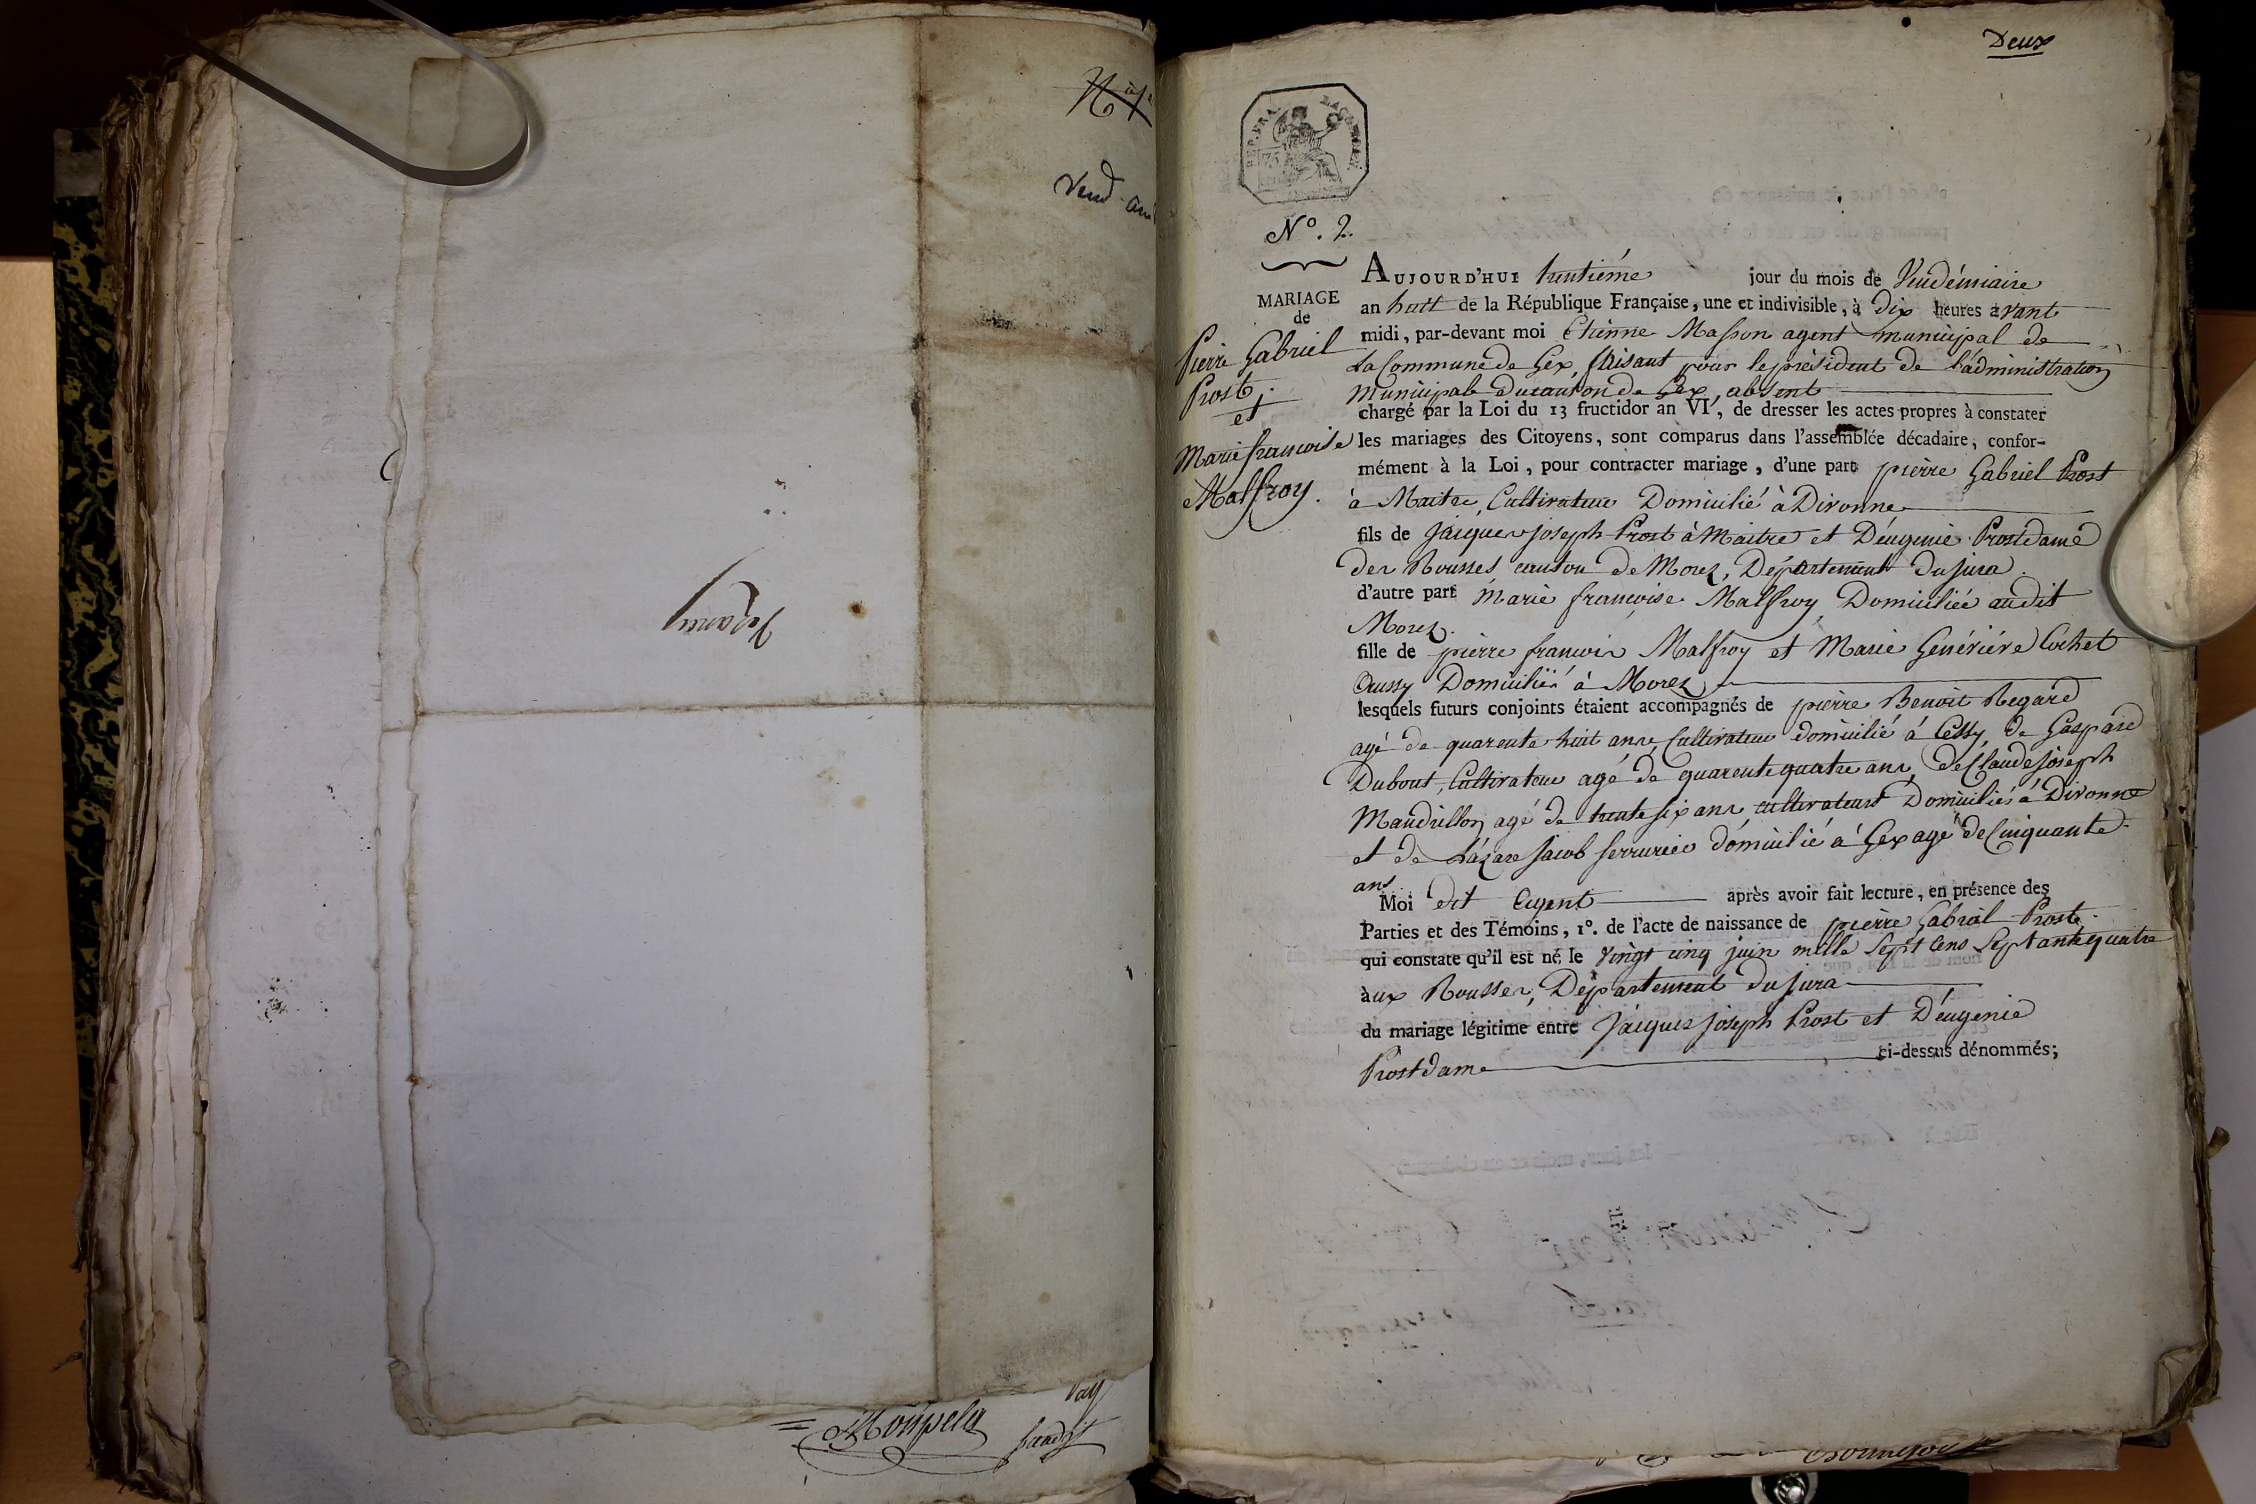 Vend. an
Vezancy
Monpela
Deux
REP. FRA.
N.º 2.
MARIAGE
de
Pierre Gabriel
Prost
et
Marie françoise
Malfroy.
AUJOURD'HUI trentiéme jour du mois de Vendémiaire
an huit de la République Française, une et indivisible, à dix heures avant
midi, par-devant moi Etienne Masson agent municipal de
La Commune de Gex, faisant pour le président de l'administration
Municipale du canton de Gex, absent
chargé par la Loi du 13 fructidor an VI, de dresser les actes propres à constater
les mariages des Citoyens, sont comparus dans l'assemblée décadaire, confor-
mément à la Loi, pour contracter mariage, d'une part pierre Gabriel Prost
à Maitre, Cultivateur Domicilié à Divonne
fils de Jacques joseph Prost à Maitre et D'éugenie Prost dame
des Rousses canton de Morez, Département du jura.
d'autre part marie françoise Malfroy Domiciliée audit
Morez.
fille de pierre françois Malfroy et Marie Généviéve Cochet
Crussy Domicilié à Morez
lesquels futurs conjoints étaient accompagnés de pierre Benoit Regard
agé de quarente huit ans, Cultivateur domicilié à Cessy, de Gaspard
Dubout, Cultivateur agé de quarente quatre ans, de Claude joseph
Mandrillon agé de trente six ans cultivateurs Domiciliés à Divonne
et de Lazare Jacob serrurier domicilié à Gex agé de Cinquante
ans.
Moi dit Agent après avoir fait lecture, en présence des
Parties et des Témoins, 1º. de l'acte de naissance de pierre Gabriel Prost
qui constate qu'il est né le vingt cinq juin mille sept cens septante quatre
aux Rousses, Département du jura
du mariage légitime entre Jacques joseph Prost et D'éugenie
Prost dame ci-dessus dénommés;